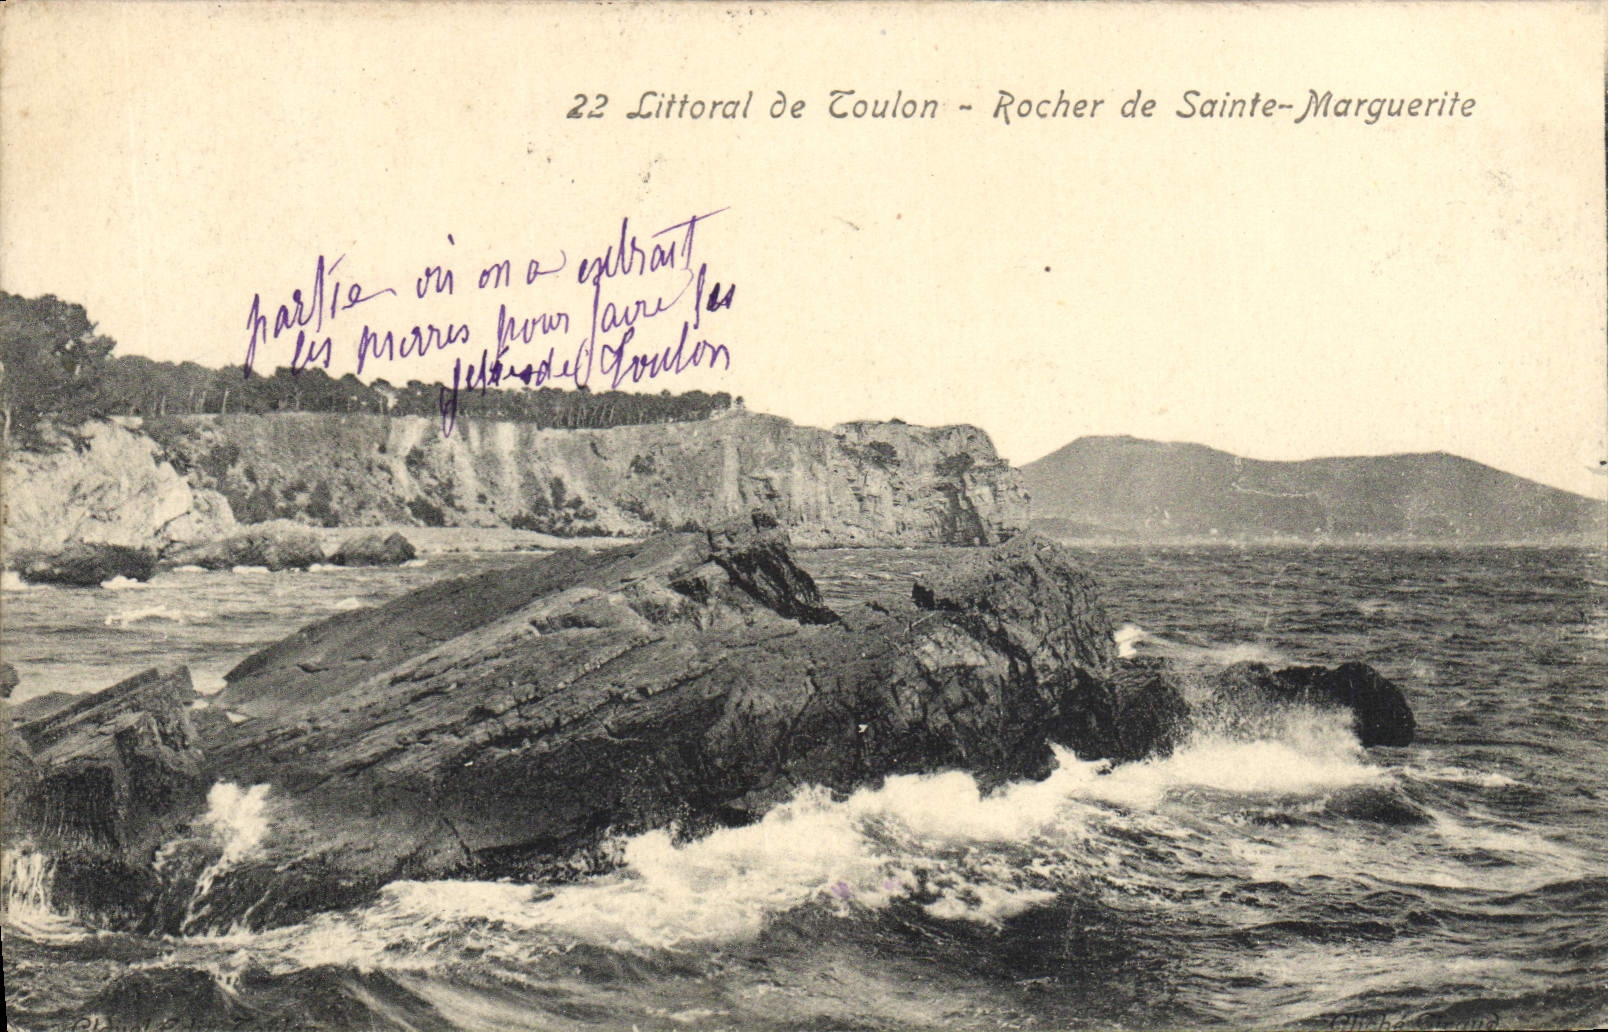 22 Littoral de Toulon - Rocher de Sainte-Marguerite
partie où on a extrait
les pierres pour faire les
jetées de Toulon
Toulon
Cliché